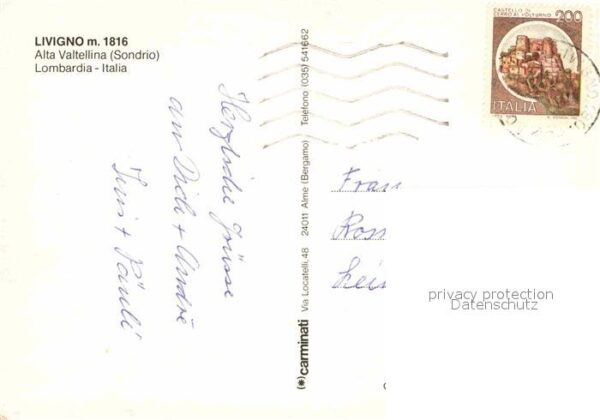 LIVIGNO m. 1816
Alta Valtellina (Sondrio)
Lombardia - Italia
Herzliche Grüsse
an Dich + André
Iris + Päuli
(*)carminati Via Locatelli, 48 24011 Almè (Bergamo) Telefono (035) 541662
CASTELLO DI
CERRO AL VOLTURNO
200
ITALIA
privacy protection
Datenschutz